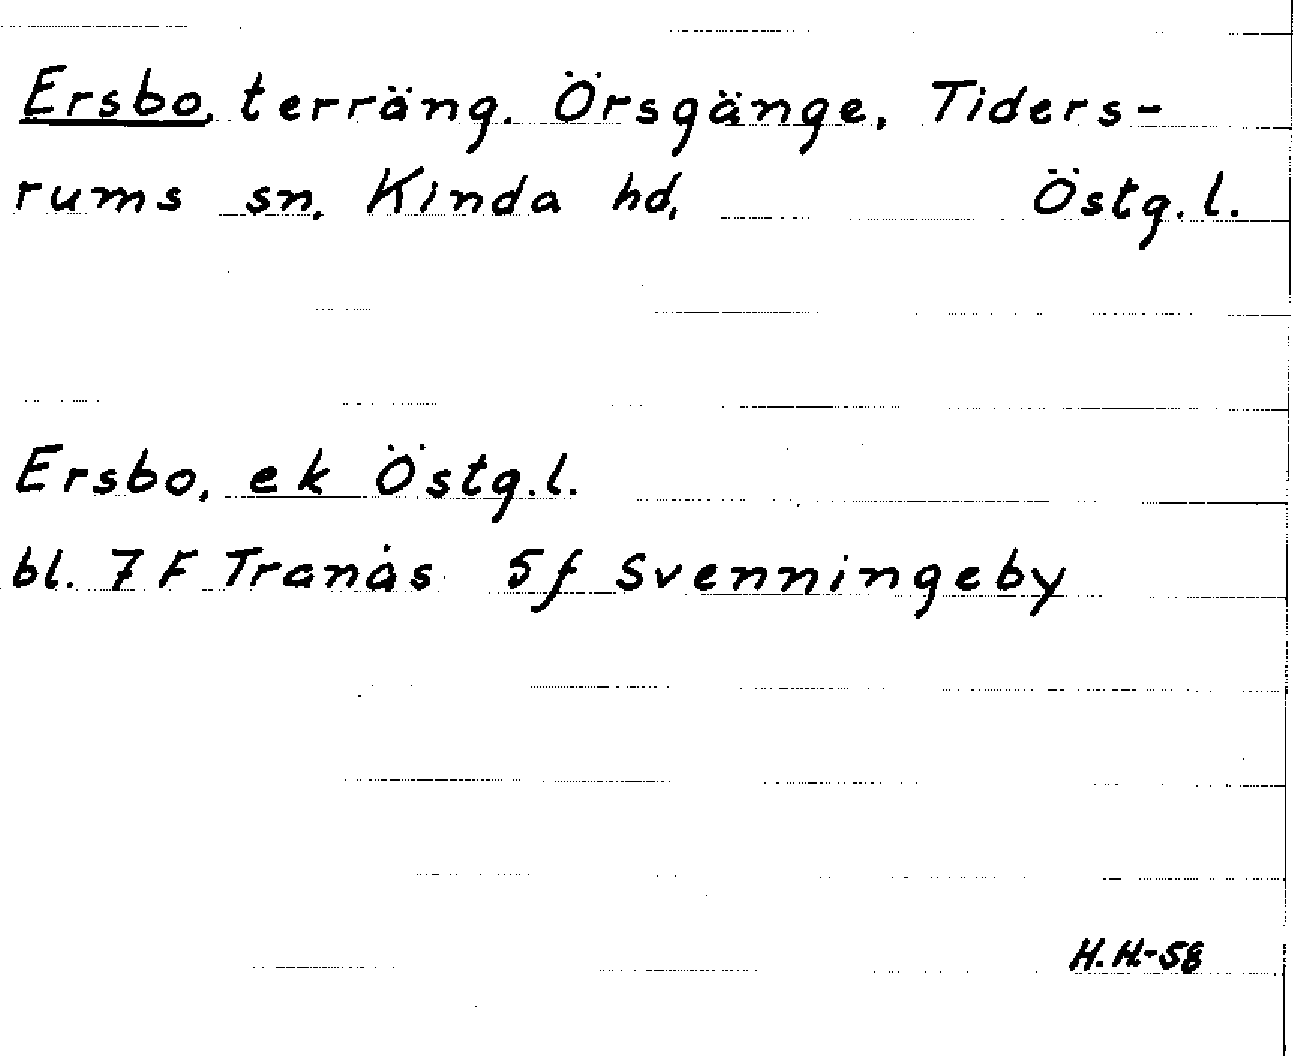 Ersbo, terräng. Örsgänge, Tiders-
rums sn, Kinda hd, Östg.l.
Ersbo, ek Östg.l.
bl. 7F Tranås 5f Svenningeby
H.H-58